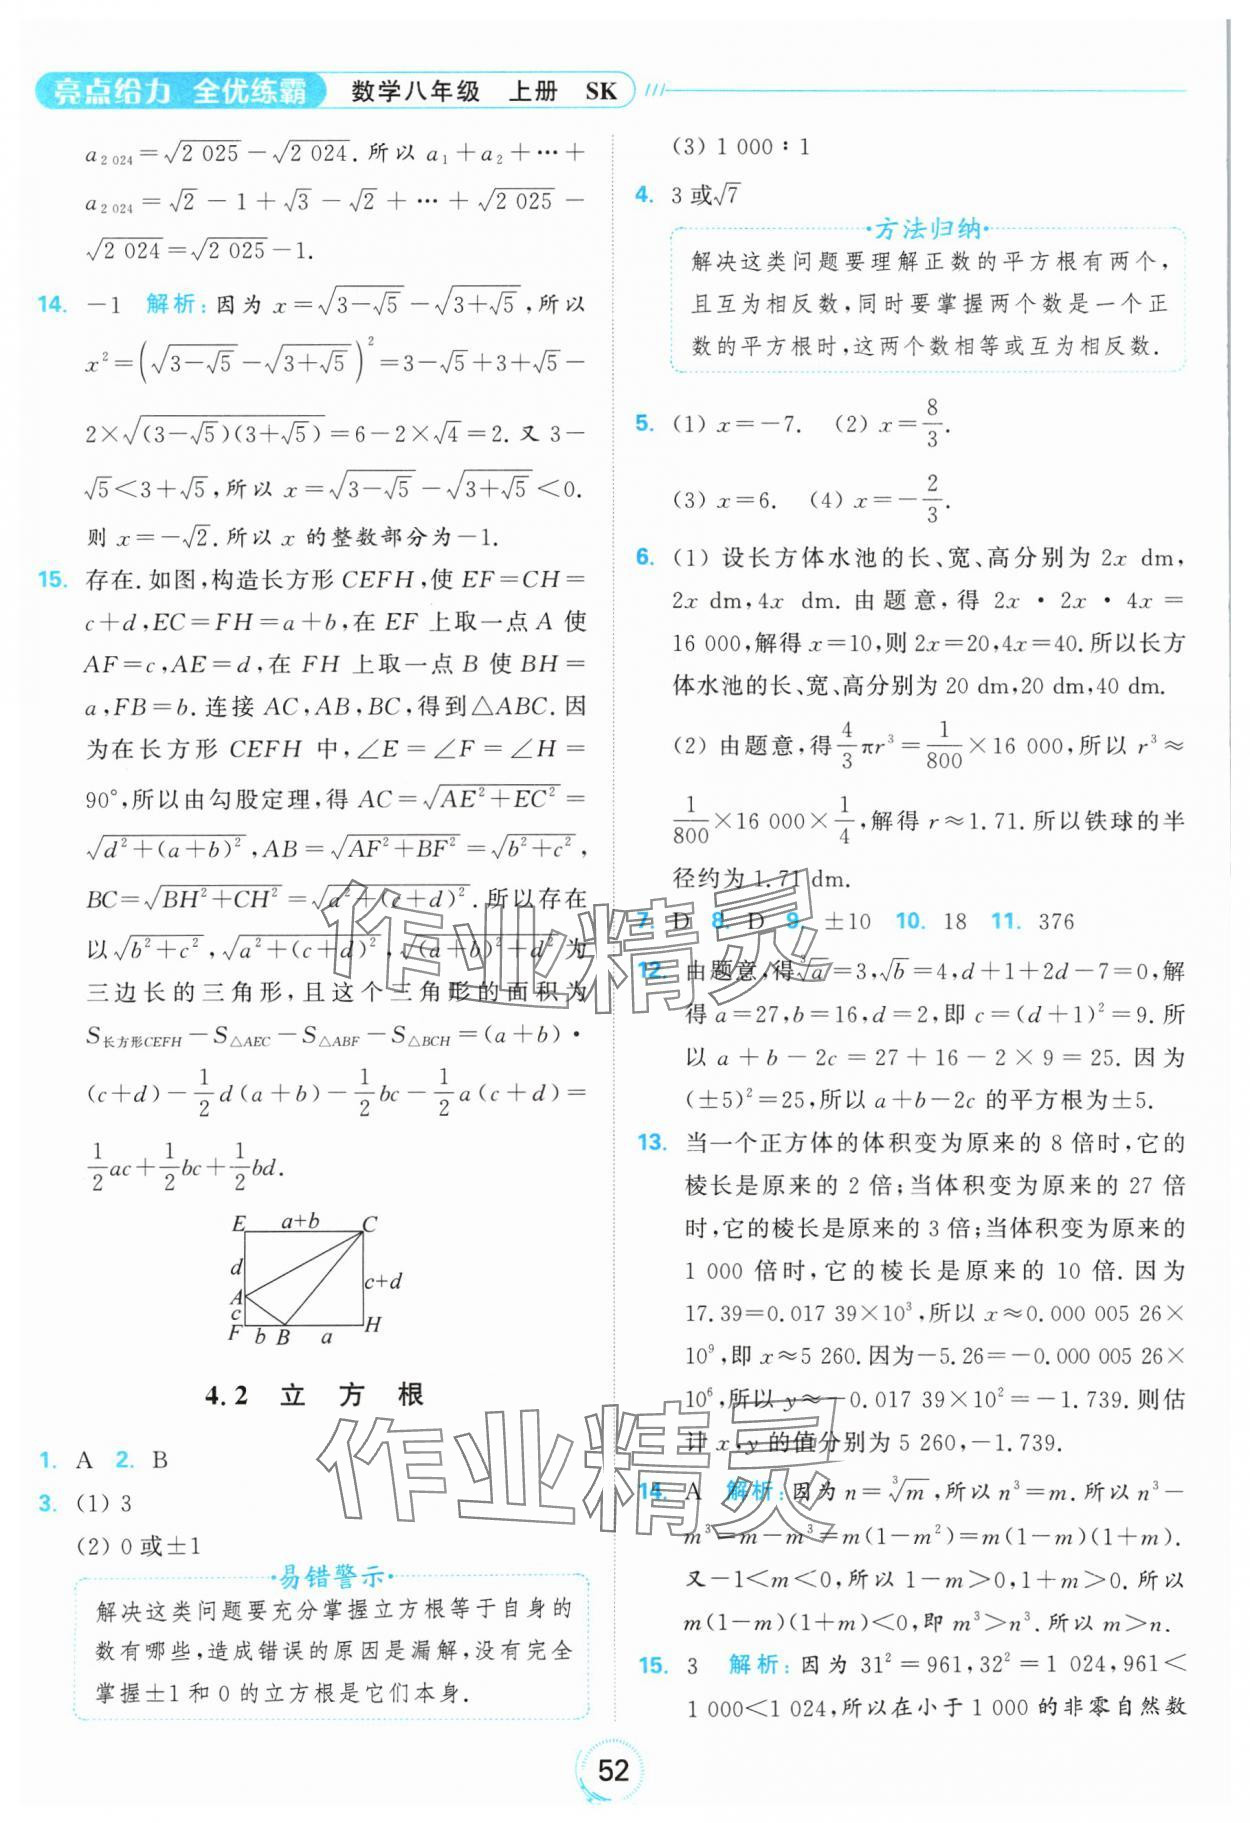 亮点给力 全优练霸 数学八年级 上册 SK
a₂ ₀₂₄=√2 025−√2 024.所以 a₁+a₂+⋯+
a₂ ₀₂₄=√2−1+√3−√2+⋯+√2 025−
√2 024=√2 025−1.
14. −1 解析:因为 x=√(3−√5)−√(3+√5),所以
x²=(√(3−√5)−√(3+√5))²=3−√5+3+√5−
2×√((3−√5)(3+√5))=6−2×√4=2.又 3−
√5<3+√5,所以 x=√(3−√5)−√(3+√5)<0.
则 x=−√2.所以 x 的整数部分为−1.
15. 存在.如图,构造长方形 CEFH,使 EF=CH=
c+d,EC=FH=a+b,在 EF 上取一点 A 使
AF=c,AE=d,在 FH 上取一点 B 使 BH=
a,FB=b.连接 AC,AB,BC,得到△ABC.因
为在长方形 CEFH 中,∠E=∠F=∠H=
90°,所以由勾股定理,得 AC=√(AE²+EC²)=
√(d²+(a+b)²),AB=√(AF²+BF²)=√(b²+c²),
BC=√(BH²+CH²)=√(a²+(c+d)²).所以存在
以√(b²+c²),√(a²+(c+d)²),√((a+b)²+d²)为
三边长的三角形,且这个三角形的面积为
S长方形CEFH−S△AEC−S△ABF−S△BCH=(a+b)·
(c+d)−1/2d(a+b)−1/2bc−1/2a(c+d)=
1/2ac+1/2bc+1/2bd.
E a+b C
d
A c+d
c
F b B a H
4.2 立方根
1. A 2. B
3. (1) 3
(2) 0或±1
·易错警示·
解决这类问题要充分掌握立方根等于自身的
数有哪些,造成错误的原因是漏解,没有完全
掌握±1和0的立方根是它们本身.
(3) 1 000∶1
4. 3或√7
·方法归纳·
解决这类问题要理解正数的平方根有两个,
且互为相反数,同时要掌握两个数是一个正
数的平方根时,这两个数相等或互为相反数.
5. (1) x=−7. (2) x=8/3.
(3) x=6. (4) x=−2/3.
6. (1) 设长方体水池的长、宽、高分别为 2x dm,
2x dm,4x dm.由题意,得 2x·2x·4x=
16 000,解得 x=10,则 2x=20,4x=40.所以长方
体水池的长、宽、高分别为 20 dm,20 dm,40 dm.
(2) 由题意,得4/3πr³=1/800×16 000,所以 r³≈
1/800×16 000×1/4,解得 r≈1.71.所以铁球的半
径约为 1.71 dm.
7. D 8. D 9. ±10 10. 18 11. 376
12. 由题意,得∛a=3,√b=4,d+1+2d−7=0,解
得 a=27,b=16,d=2,即 c=(d+1)²=9.所
以 a+b−2c=27+16−2×9=25.因为
(±5)²=25,所以 a+b−2c 的平方根为±5.
13. 当一个正方体的体积变为原来的 8 倍时,它的
棱长是原来的 2 倍;当体积变为原来的 27 倍
时,它的棱长是原来的 3 倍;当体积变为原来的
1 000 倍时,它的棱长是原来的 10 倍.因为
17.39=0.017 39×10³,所以 x≈0.000 005 26×
10⁹,即 x≈5 260.因为−5.26=−0.000 005 26×
10⁶,所以 y≈−0.017 39×10²=−1.739.则估
计 x,y 的值分别为 5 260,−1.739.
14. A 解析:因为 n=∛m,所以 n³=m.所以 n³−
m³=m−m³=m(1−m²)=m(1−m)(1+m).
又−1<m<0,所以 1−m>0,1+m>0.所以
m(1−m)(1+m)<0,即 m³>n³.所以 m>n.
15. 3 解析:因为 31²=961,32²=1 024,961<
1 000<1 024,所以在小于 1 000 的非零自然数
52
作业精灵
作业精灵